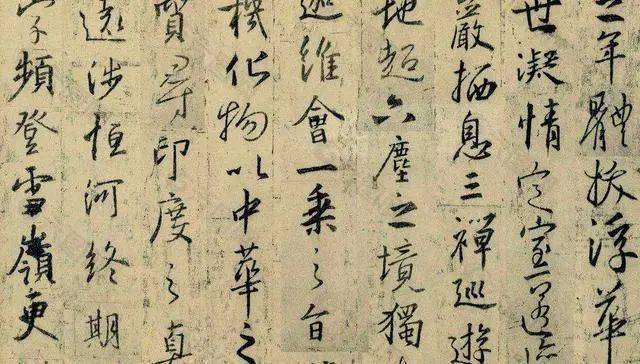 之年體拔浮華
世凝情定室匿跡
巖栖息三禪巡遊
地超六塵之境獨
迦維會一乘之旨
機化物以中華之
質尋印度之真
遠涉恒河終期
字頻登雪嶺更